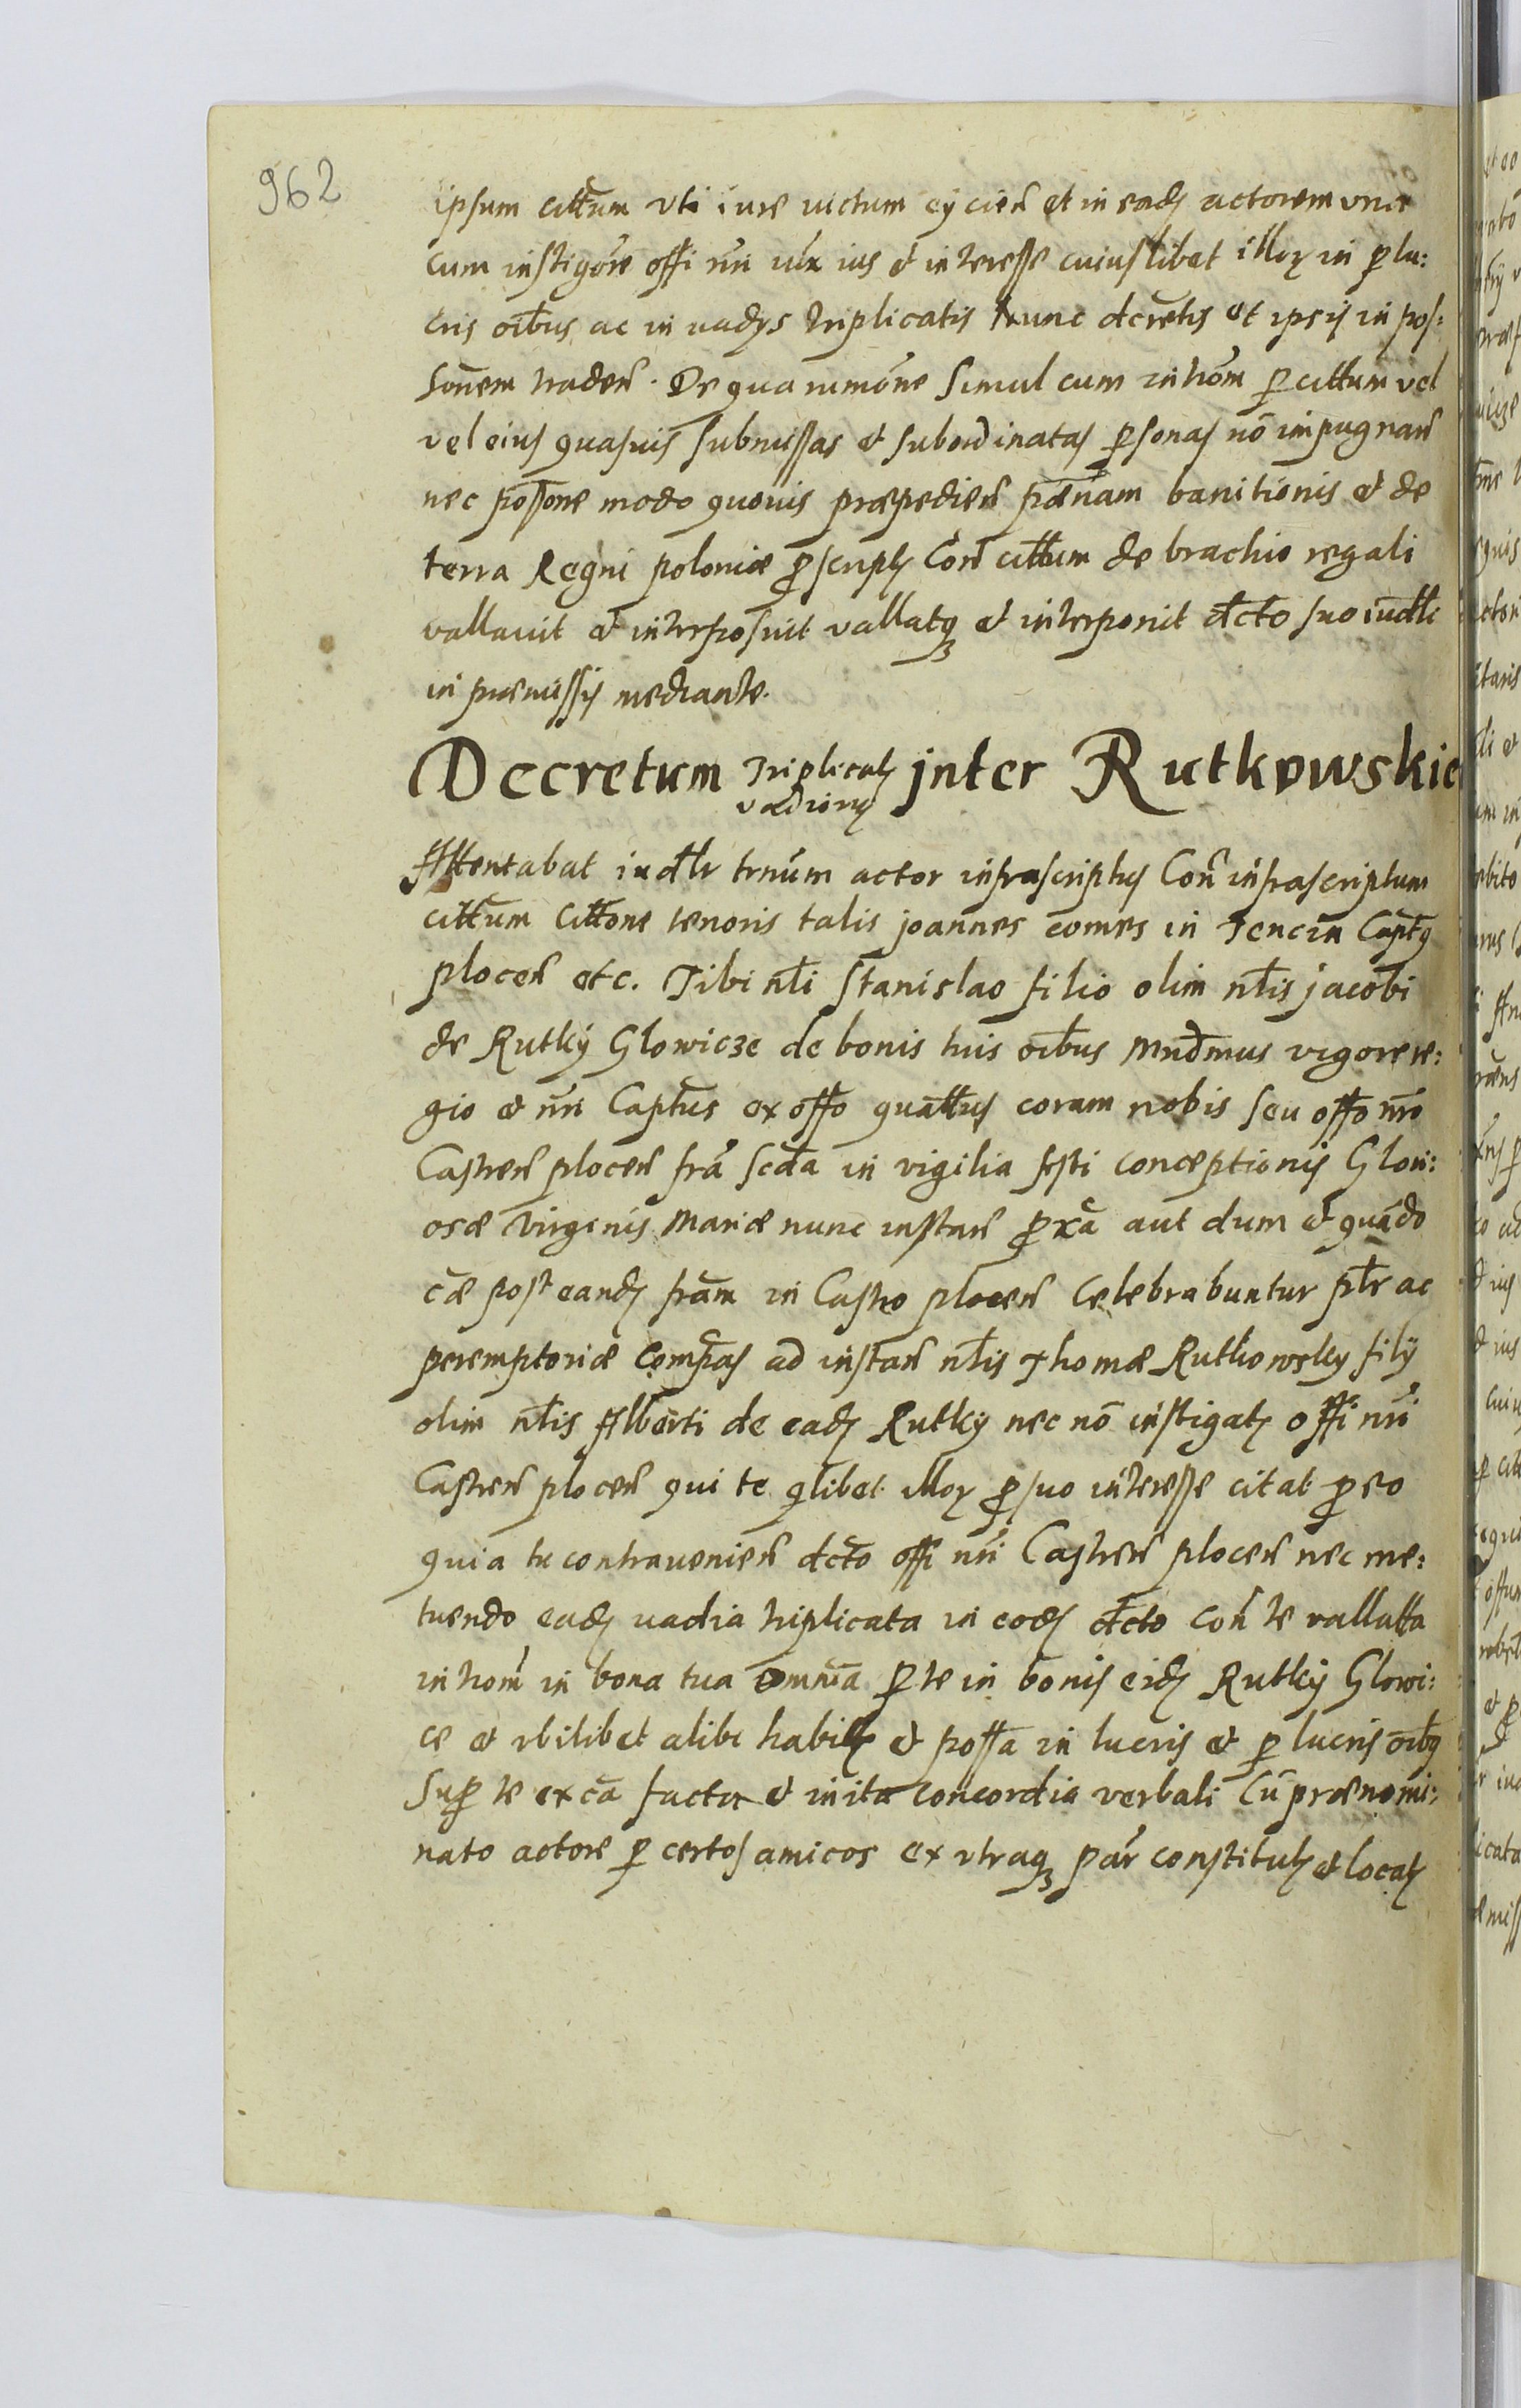 962
ipsum cittum uti iure victum eycień et in eadȝ actorem una
cum instigōre offi nri iux ius et interesse cuiuslibet illoȝ in p lu:
cris oībus ac in vadys triplicatis nunc dcretis et ipsis in pos:
sōnem tradeń. De qua rumōne simul cum intrōm p cittum vel
vel eius quasvis submissas et subordinatas psonas nō impugnań
nec possōne modo quovis præpedień pœnam banitionis et de
terra Regni poloniæ pscriptȝ Coń cittum de brachio regali
vallavit et interposuit vallatqȝ et interponit dcto suo iudlr
in præmissis mediante.
Decretum Triplicatȝ vadiorȝ inter Rutkowskie
Attentabat iudlr trnūm actor infrascriptus Coń infrascriptum
cittum Cittōne tenoris talis joannes comes in Tencin Captꝰ
ploceń etc. Tibi nli Stanislao filio olim nlis jacobi
de Rutky Glowicze de bonis tuis oībus Mndmus vigore re:
gio et nri Captus ex offo quattus coram nobis seu offo nro
Castreń ploceń fra scda in vigilia festi conceptionis Glori:
osæ Virginis Mariæ nunc instań pxa aut dum et quando
cæ post eandȝ fram in Castro ploceń celebrabuntur ptr ac
peremptoriæ Compas ad instań nlis Thomæ Rutkowsky fily
olim nlis Alberti de eadȝ Rutky nec nō instigatȝ offi nri
Castreń ploceń qui te qlibet illoȝ p suo interesse citat p eo
quia tu contravenień dcto offi nri Castreń ploceń nec me:
tuendo eadȝ vadia triplicata in eodȝ dcto coń te vallatta
introm in bona tua omnia p te in bonis eidȝ Rutky Glowi:
ce et ubilibet alibi habitȝ et possa in lucris et p lucris oībꝰ
Sup te ex ca facta et inita concordia verbali cū prænomi:
nato actore p certos amicos ex utraqȝ par constitutȝ et locatȝ